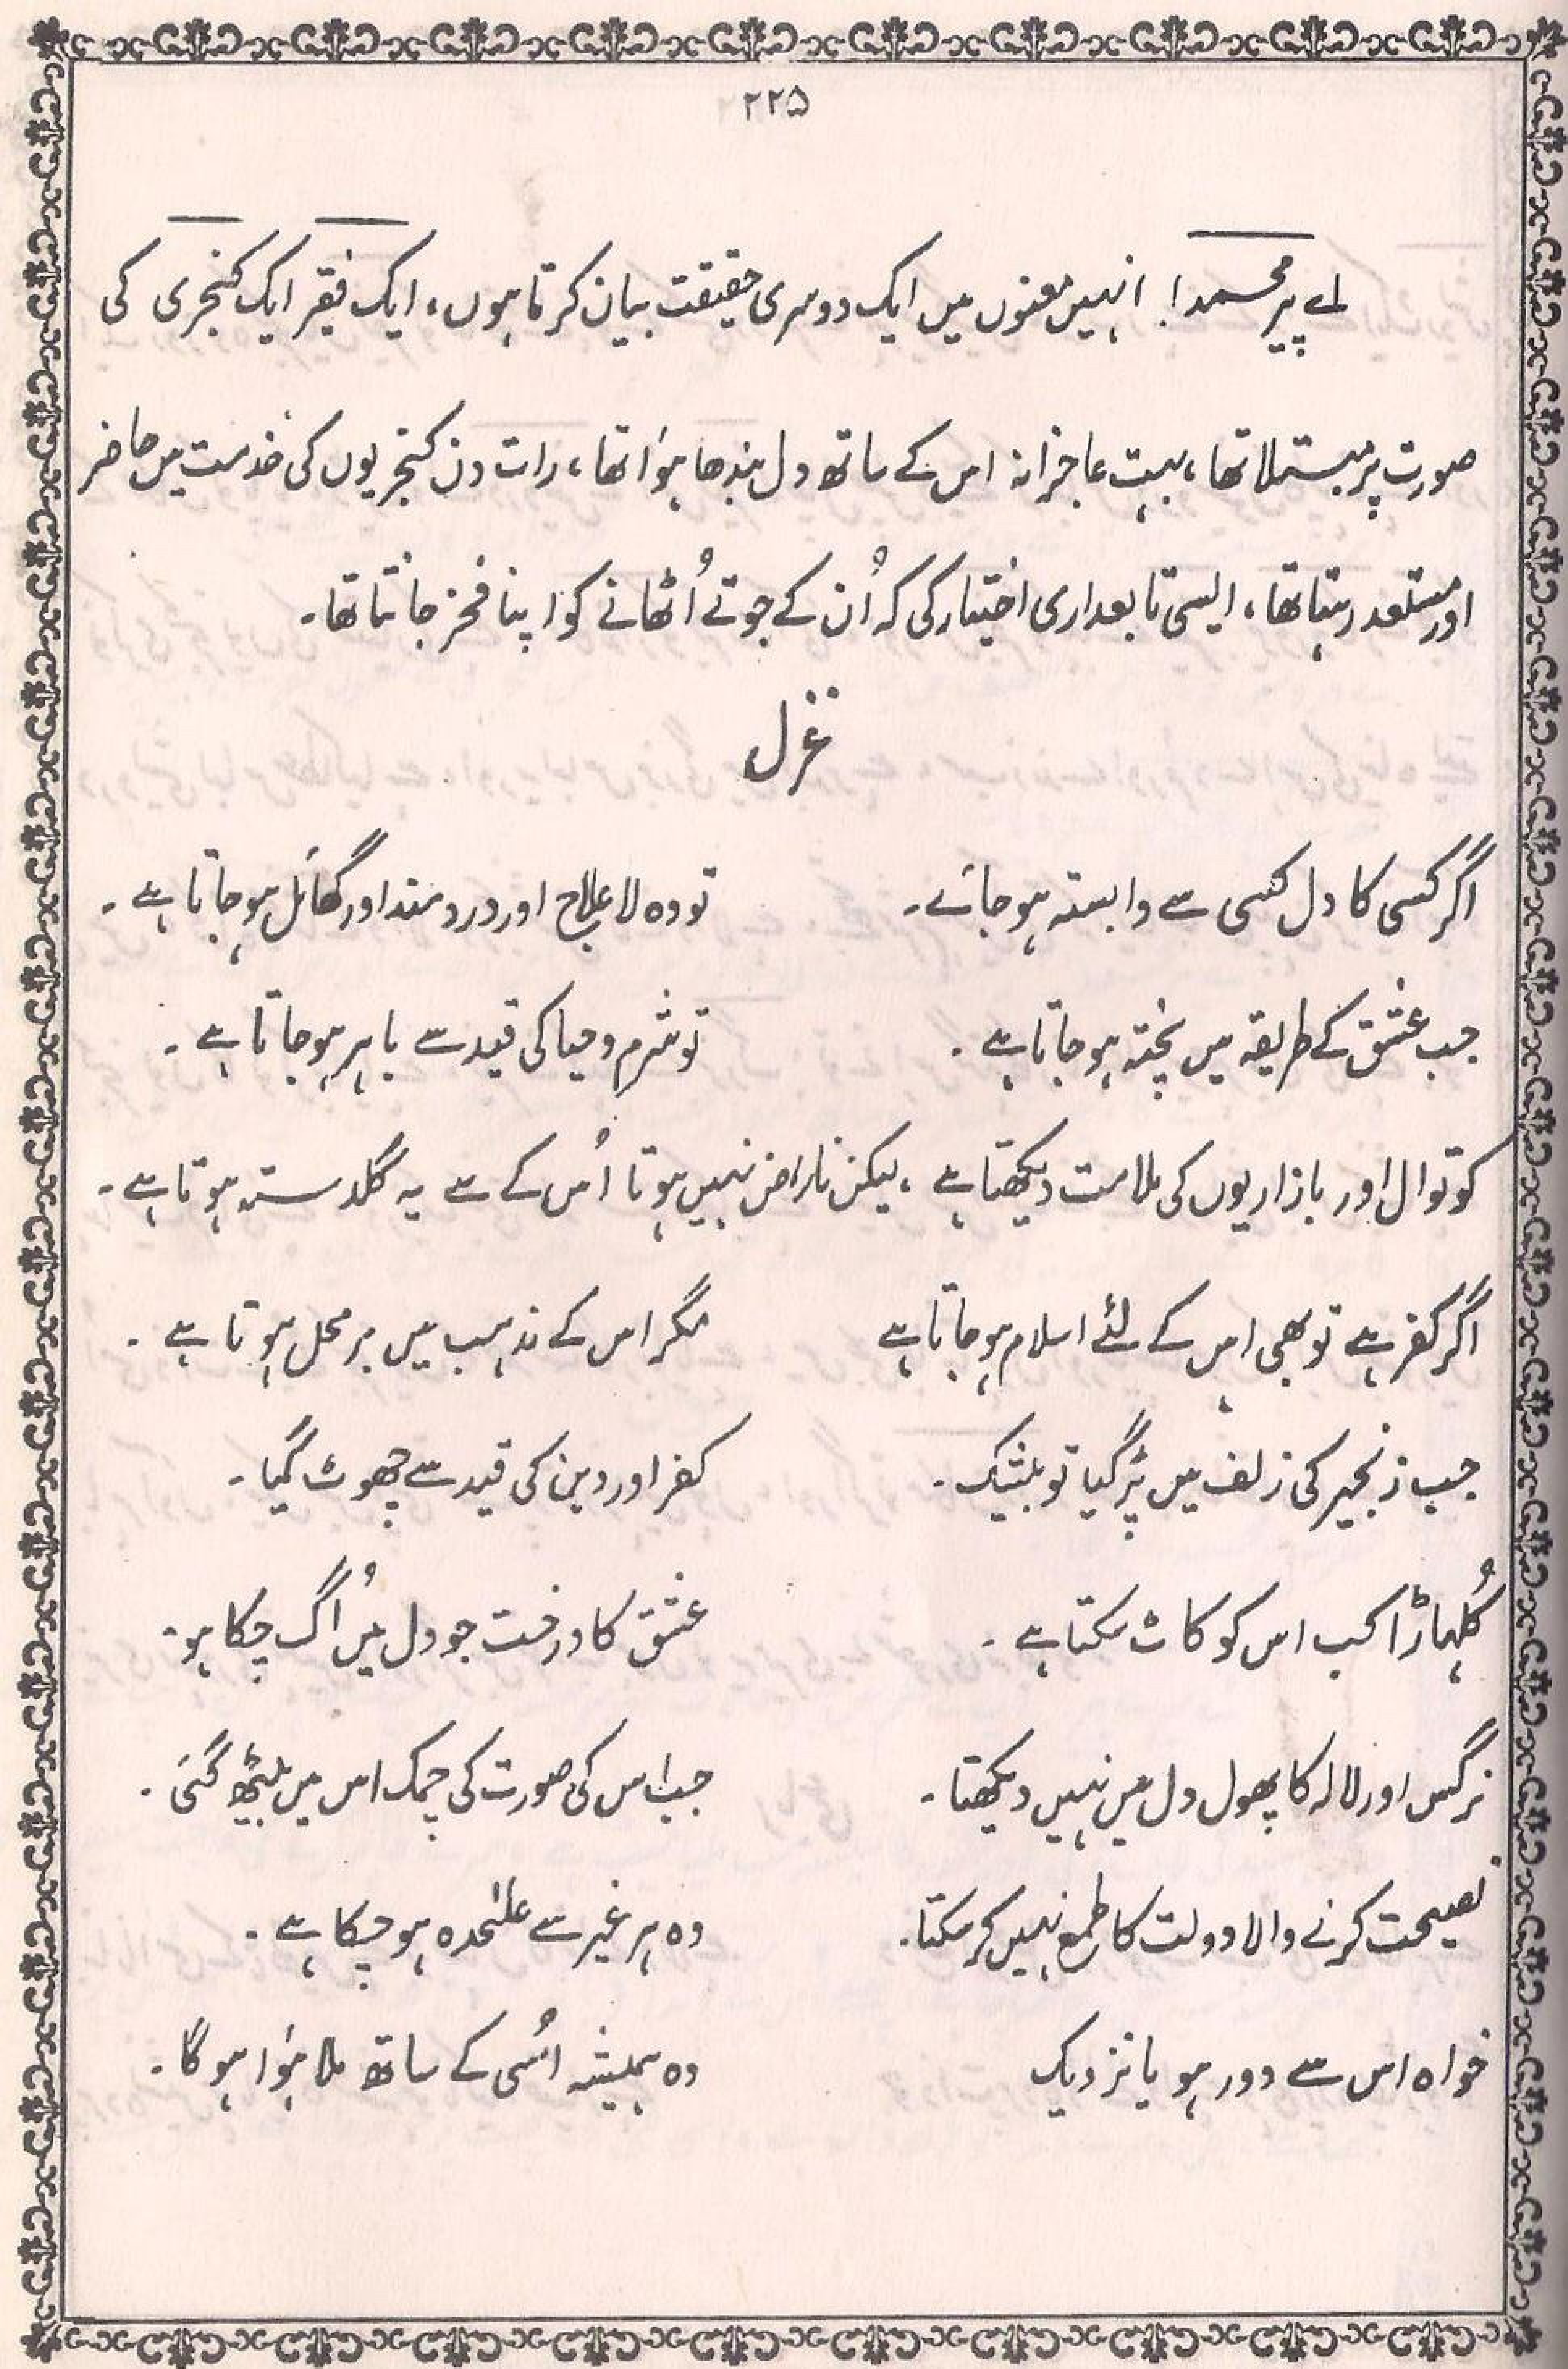 ۲۲۵
اے پیر محمد! انہیں معنوں میں ایک دوسری حقیقت بیان کرتا ہوں، ایک فقیر ایک کنجری کی
صورت پر مبتلا تھا، بہت عاجزانہ اس کے ساتھ دل بندھا ہوٴا تھا، رات دن کنجریوں کی خدمت میں حاضر
اور مستعد رہتا تھا، ایسی تابعداری اختیار کی کہ اُن کے جوتے اُٹھانے کو اپنا فخر جانتا تھا۔
غزل
اگر کسی کا دل کسی سے وابستہ ہو جائے۔ تو وہ لا علاج اور دردمند اور گھائل ہو جاتا ہے۔
جب عشق کے طریقہ میں پختہ ہو جاتا ہے۔ تو شرم و حیا کی قید سے باہر ہو جاتا ہے۔
کوتوال اور بازاریوں کی ملامت دیکھتا ہے، لیکن ناراض نہیں ہوتا اُس کے سے یہ گلدستہ ہوتا ہے۔
اگر کفر ہے تو بھی اس کے لئے اسلام ہو جاتا ہے مگر اس کے مذہب میں بر محل ہوتا ہے۔
جب زنجیر کی زلف میں پڑ گیا تو بیشک۔ کفر اور دین کی قید سے چھوٹ گیا۔
کُلہاڑا کب اس کو کاٹ سکتا ہے۔ عشق کا درخت جو دل میں اُگ چکا ہو۔
نرگس اور لالہ کا پھول دل میں نہیں دیکھتا۔ جب اس کی صورت کی چمک اس میں بیٹھ گئی۔
نصیحت کرنے والا دولت کا طمع نہیں کر سکتا۔ وہ ہر غیر سے علیٰحدہ ہو چکا ہے۔
خواہ اس سے دور ہو یا نزدیک وہ ہمیشہ اُسی کے ساتھ ملا ہوٴا ہو گا۔